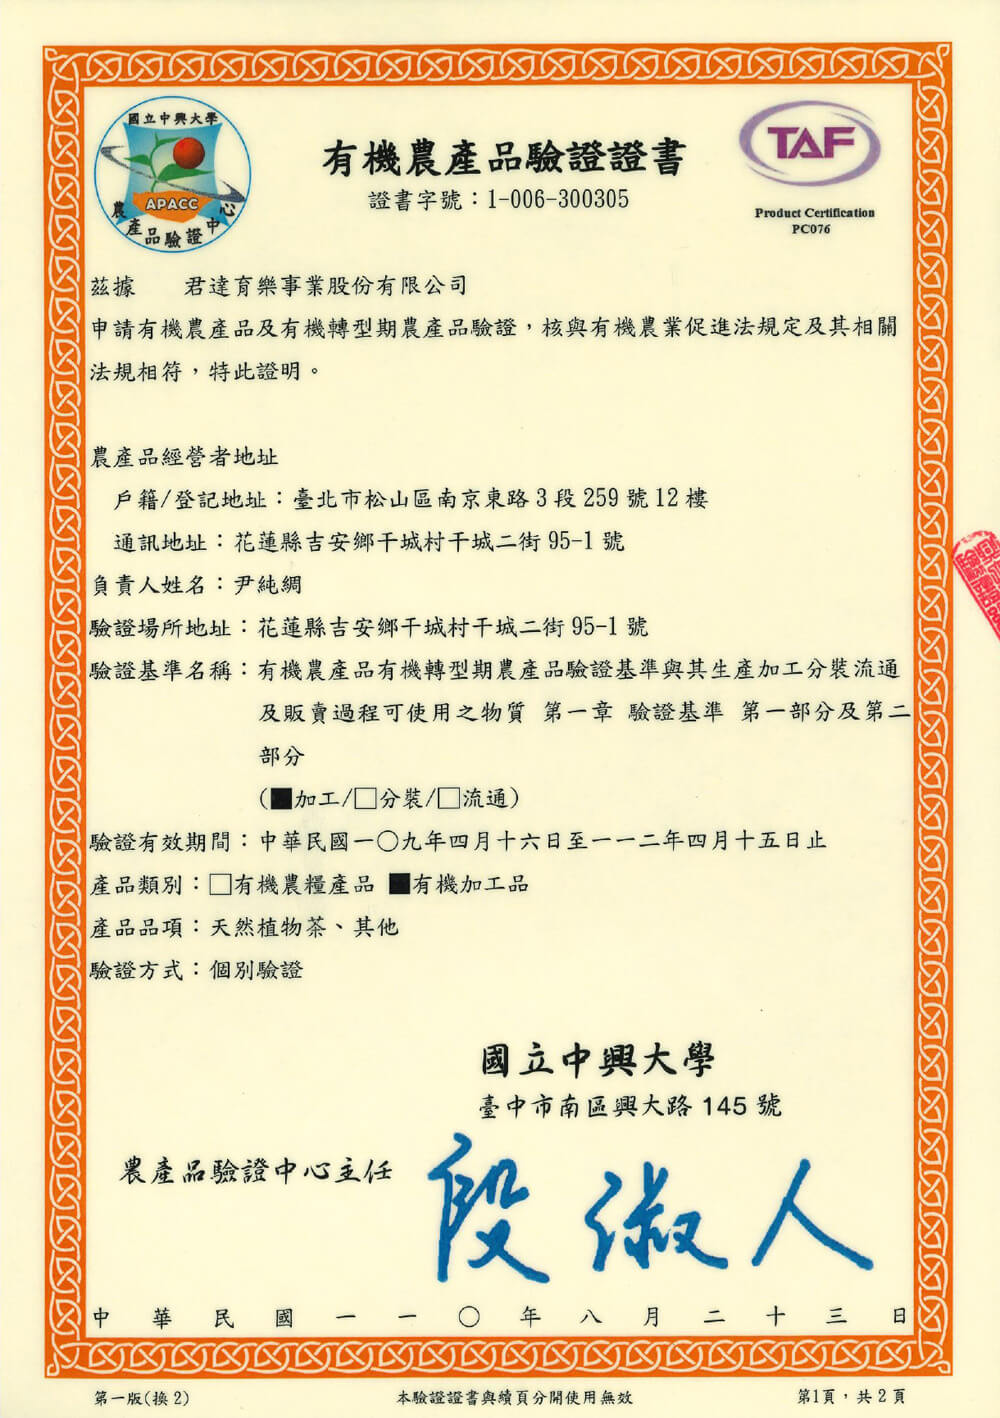 國立中興大學
APACC
農產品驗證中心
有機農產品驗證證書
證書字號：1-006-300305
TAF
Product Certification
PC076
茲據　　君達育樂事業股份有限公司
申請有機農產品及有機轉型期農產品驗證，核與有機農業促進法規定及其相關
法規相符，特此證明。
農產品經營者地址
戶籍/登記地址：臺北市松山區南京東路3段259號12樓
通訊地址：花蓮縣吉安鄉干城村干城二街95-1號
負責人姓名：尹純綢
驗證場所地址：花蓮縣吉安鄉干城村干城二街95-1號
驗證基準名稱：有機農產品有機轉型期農產品驗證基準與其生產加工分裝流通
及販賣過程可使用之物質 第一章 驗證基準 第一部分及第二
部分
(■加工/□分裝/□流通)
驗證有效期間：中華民國一〇九年四月十六日至一一二年四月十五日止
產品類別：□有機農糧產品 ■有機加工品
產品品項：天然植物茶、其他
驗證方式：個別驗證
國立中興大學
臺中市南區興大路145號
農產品驗證中心主任 段淑人
中華民國一一〇年八月二十三日
第一版(換2)
本驗證證書與續頁分開使用無效
第1頁，共2頁